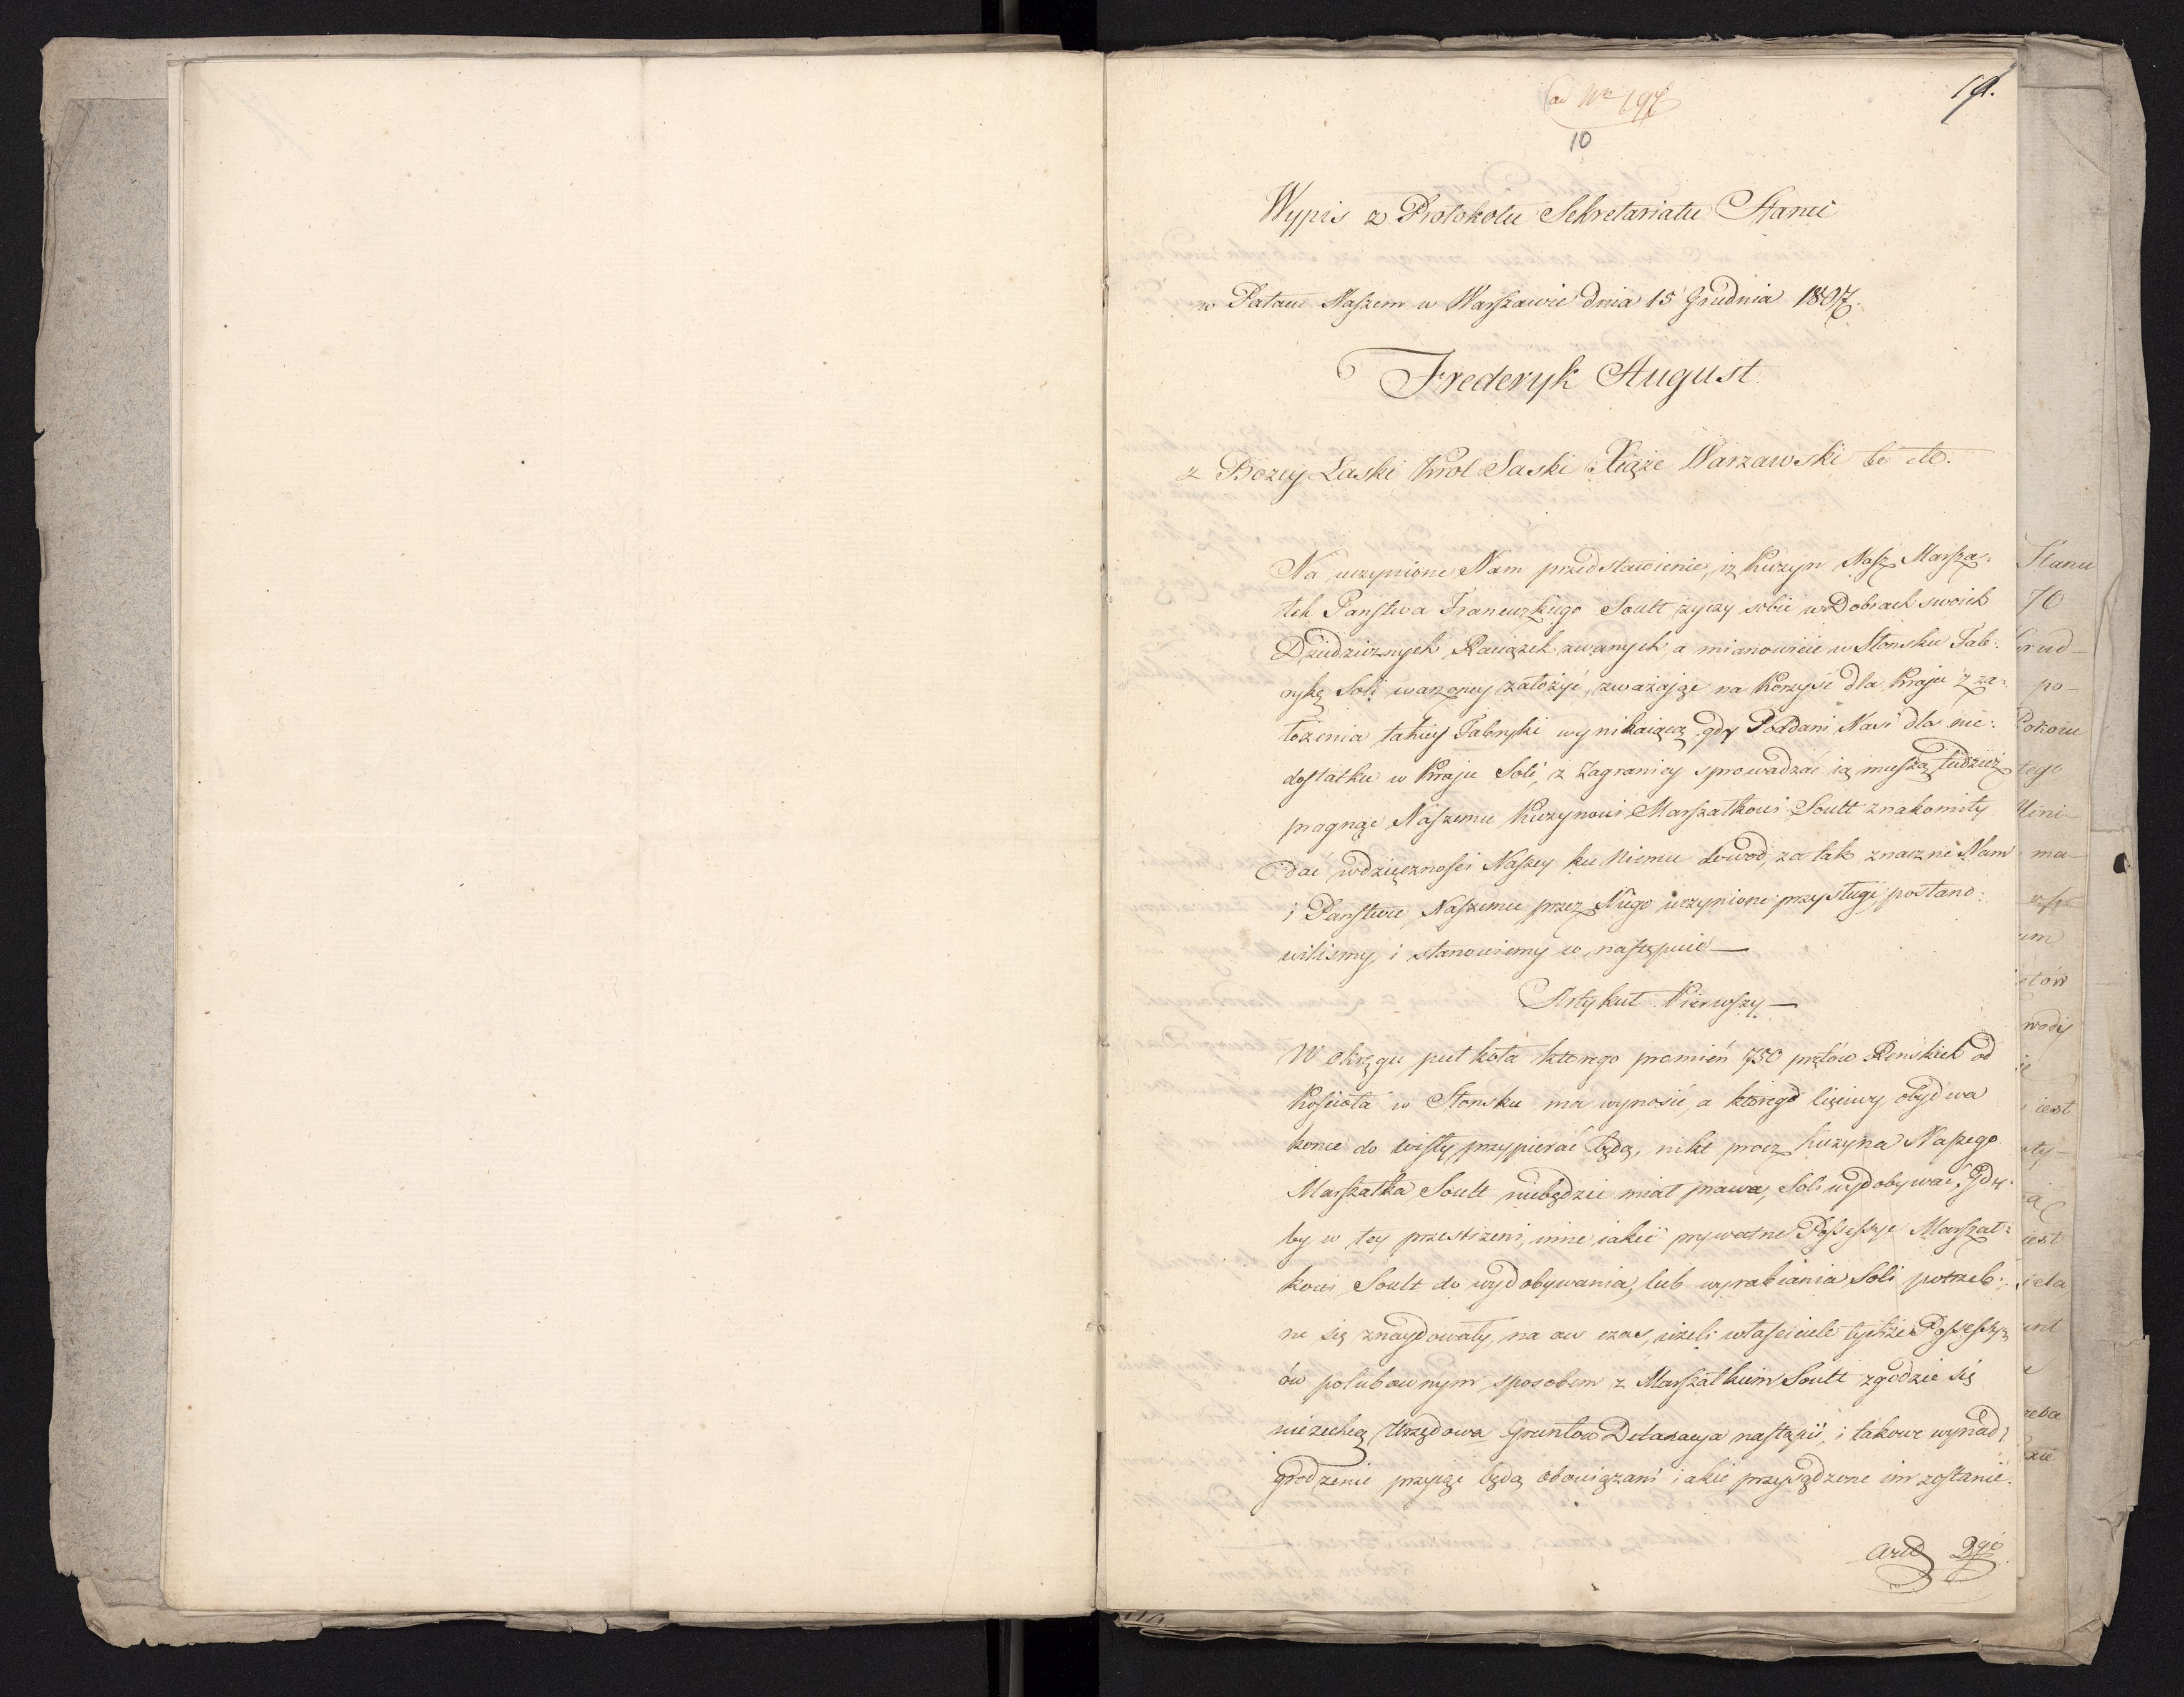 ad Nr 197
19.
10
Wypis z Protokołu Sekretariatu Stanu
w Pałacu Naszem w Warszawie dnia 15 Grudnia 1807.
Frederyk August
z Bozey Laski Krol Saski Xiąże Warzawski &c &c.
Na uczynione Nam przedstawienie, iż Kuzyn Nasz Marsza:
łek Państwa Francuzkiego Soult zyczy sobie w Dobrach swoich
Dziedzicznych Raciążek zwanych, a mianowicie w Słonsku Fab:
rykę Soli warzoney założyć, zważając na Korzyść dla Kraju z za:
łożenia takiey Fabryki wynikaiącą, gdy Poddani Nasi dla nie:
dostatku w Kraju Soli, z Zagranicy sprowadzać ią muszą, tudzież
pragnąc Naszemu Kuzynowi Marszałkowi Soult znakomity
dać wdzięczności Naszey ku Niemu dowod, za tak znaczne Nam
i Państwu Naszemu przez Niego uczynione przysługi postano:
wiliśmy, i stanowiemy co następuie —
Artykuł Pierwszy —
W okręgu puł koła ktorego promień 750 prętów Renskich od
Kościoła w Słonsku ma wynosić, a ktorego cięciwy obydwa
konce do Wisły przypierać będą, nikt procz Kuzyna Naszego
Marszałka Soult niebędzie miał prawa, Soli wydobywać. Gdy:
by w tey przestrzeni, inne iakie prywatne Possessye Marszał:
kowi Soult do wydobywania, lub wyrabiania Soli potrzeb:
ne się znaydowały, na ow czas, ieżeli właściciele tychże Possessy:
ów polubownym sposobem z Marszałkiem Soult zgodzić się
niezechcą, Urzędowa Gruntow Detaxacya nastąpi, i takowe wynad:
grodzenie przyiąć będą obowiązani iakie przysądzone im zostanie.
Art. 2gi